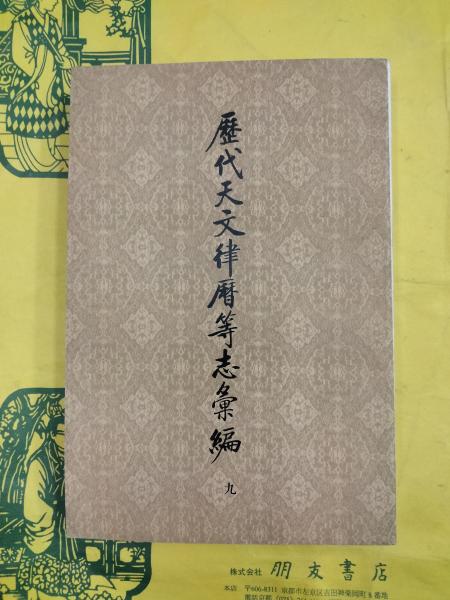 歷代天文律曆等志彙編
九
株式会社 朋友書店
本店 〒606-8311 京都市左京区吉田神楽岡町8番地